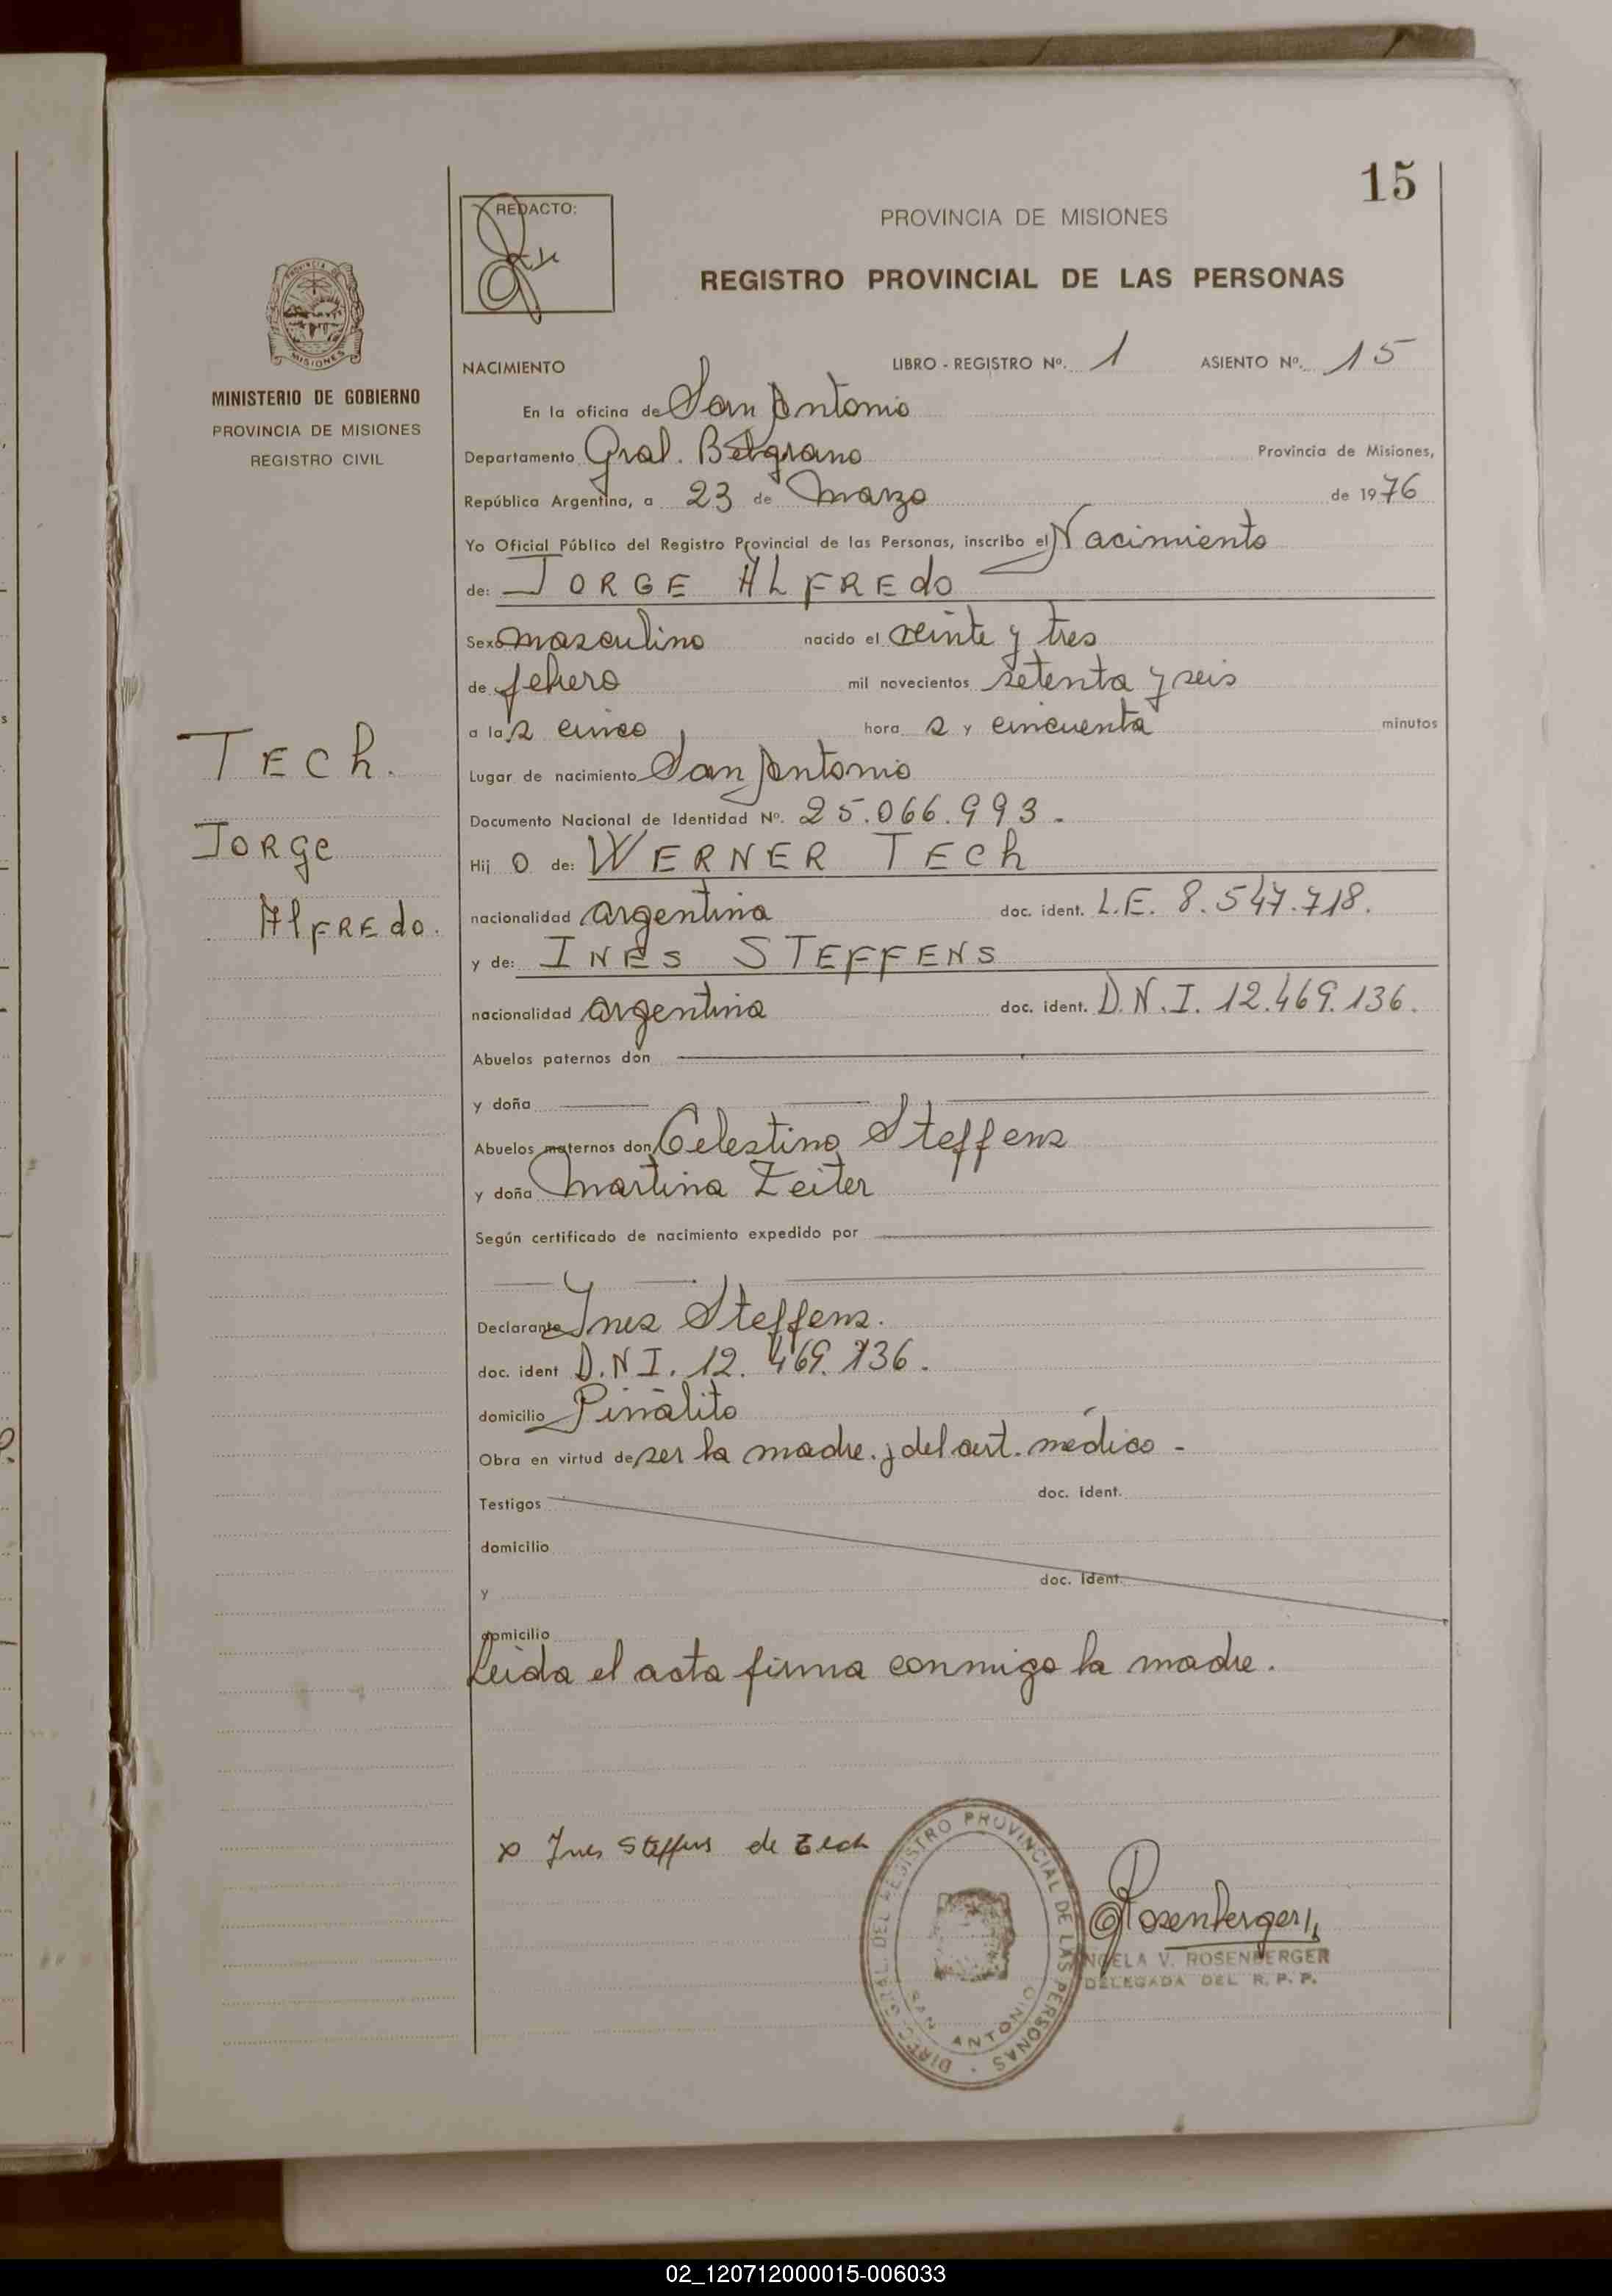 15
REDACTO:
PROVINCIA DE MISIONES
REGISTRO PROVINCIAL DE LAS PERSONAS
PROVINCIA DE
MISIONES
MINISTERIO DE GOBIERNO
PROVINCIA DE MISIONES
REGISTRO CIVIL
NACIMIENTO LIBRO - REGISTRO Nº. 1 ASIENTO Nº. 15
En la oficina de San Antonio
Departamento Gral. Belgrano Provincia de Misiones,
República Argentina, a 23 de Marzo de 1976
Yo Oficial Público del Registro Provincial de las Personas, inscribo el Nacimiento
de: JORGE ALFREdo
Sexo masculino nacido el veinte y tres
de febrero mil novecientos setenta y seis
a las cinco hora s y cincuenta minutos
Lugar de nacimiento San Antonio
Documento Nacional de Identidad Nº. 25.066.993.
Hij o de: WERNER TECh
nacionalidad argentina doc. ident. L.E. 8.547.718.
y de: INES STEFFENS
nacionalidad argentina doc. ident. D.N.I. 12.469.136.
Abuelos paternos don
y doña
Abuelos maternos don Celestino Steffens
y doña Martina Zeiter
Según certificado de nacimiento expedido por
Declarante Ines Steffens.
doc. ident D.N.I. 12.469.136.
domicilio Piñalito
Obra en virtud de ser la madre. y del cert. médico -
Testigos doc. ident.
domicilio
y doc. ident.
domicilio
Leida el acta firma conmigo la madre.
TECh.
JORGe
AlFREdo.
x Ines Steffens de Tech
DIREC. GRAL. DEL REGISTRO PROVINCIAL DE LAS PERSONAS
SAN ANTONIO
Rosenberger
NGELA V. ROSENBERGER
DELEGADA DEL R. P. P.
02_120712000015-006033